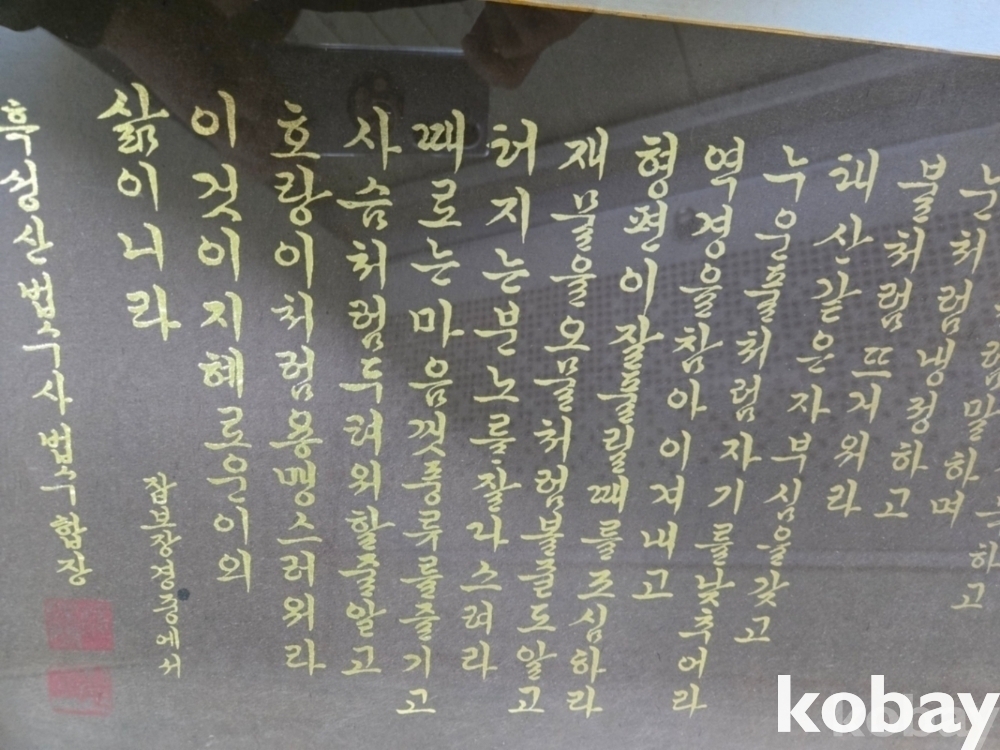 하고
럼말하며
눈처럼냉정하고
불처럼뜨거워라
태산같은자부심을갖고
누운풀처럼자기를낮추어라
역경을참아이겨내고
형편이잘풀릴때를조심하라
재물을오물처럼볼줄도알고
터지는분노를잘다스려라
때로는마음껏풍류를즐기고
사슴처럼두려워할줄알고
호랑이처럼용맹스러워라
이것이지혜로운이의
삶이니라
잡보장경중에서
흑성산법수사법수합장
kobay